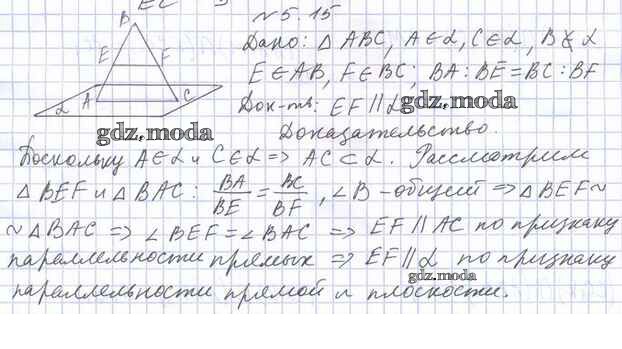 EC
№5.15
B
Дано: △ABC, A∈α, C∈α, B∉α
E F
E∈AB, F∈BC; BA:BE=BC:BF
A C
α
Док-ть: EF∥α
gdz.moda
gdz.moda
Доказательство.
Поскольку A∈α и C∈α => AC⊂α. Рассмотрим
△BEF и △BAC: BA/BE = BC/BF, ∠B-общий => △BEF~
~△BAC => ∠BEF=∠BAC => EF∥AC по признаку
параллельности прямых => EF∥α по признаку
gdz.moda
параллельности прямой и плоскости.